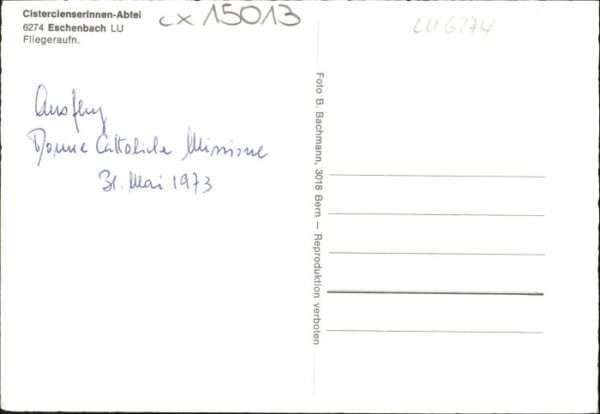 Cistercienserinnen-Abtei
6274 Eschenbach LU
Fliegeraufn.
cx 15013
LU 6274
Ausflug
Donne Cattoliche Missione
31. Mai 1973
Foto B. Bachmann, 3018 Bern — Reproduktion verboten